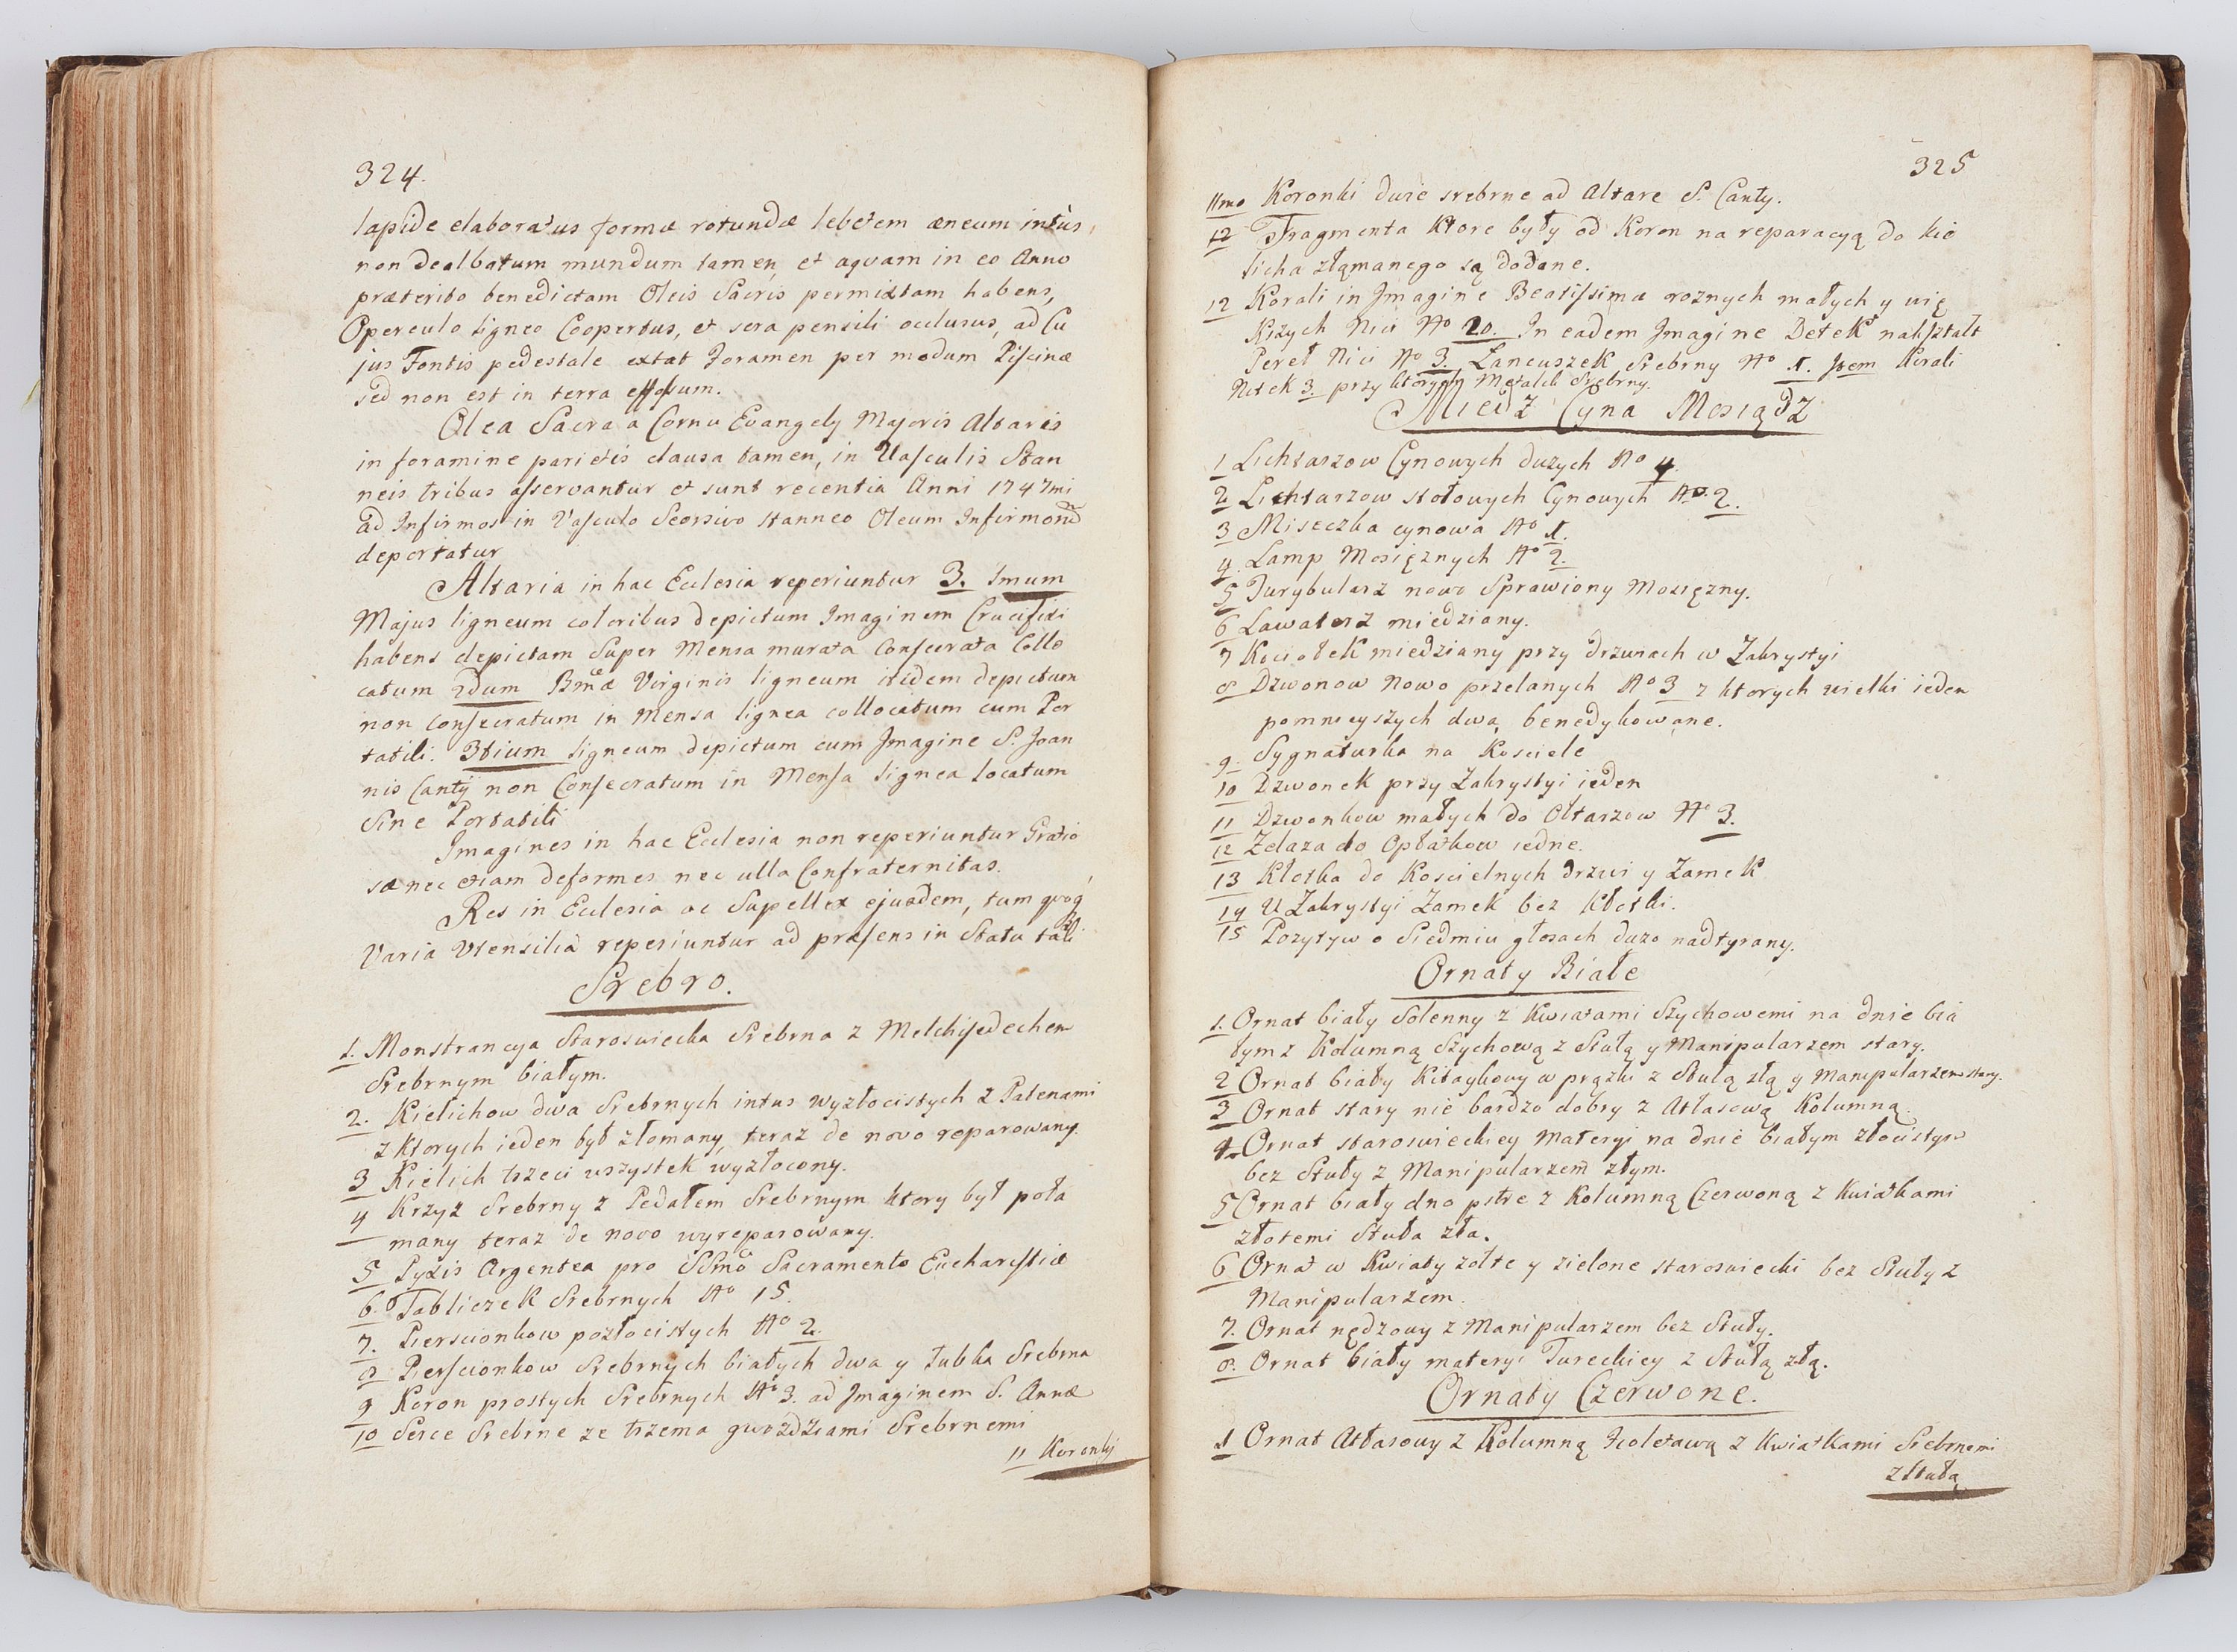 324.
lapide elaboratus formæ rotundæ lebetem æneum intùs,
non dealbatum mundum tamen, et aqvam in eo Anno
præterito benedictam Oleis Sacris permixtam habens,
Operculo ligneo Coopertus, et sera pensili occlusus, ad Cu
jus Fontis pedestale extat Foramen per modum Piscinæ
sed non est in terra effossum.
Olea Sacra a Cornu Evangely Majoris Altaris
in foramine parietis clausa tamen, in Vasculis Stan
neis tribus asservantur et sunt recentia Anni 1747mi
ad Infirmos in Vasculo Seorsivo stanneo Oleum Infirmorũ
deportatur
Altaria in hac Ecclesia reperiuntur 3. 1mum
Majus ligneum coloribus depictum Imaginem Crucifixi
habens depictam Super Mensa murata Consecrata Collo
catum 2dum Bmæ Virginis ligneum itidem depictum
non consecratum in Mensa lignea collocatum cum Por
tatili. 3tium ligneum depictum cum Imagine S. Joan
nis Cantÿ non Consecratum in Mensa lignea locatum
Sine Portatili
Imagines in hac Ecclesia non reperiuntur Gratio
sæ nec etiam deformes nec ulla Confraternitas.
Res in Ecclesia ac Supellex ejusdem, tum qvoq́
Varia Utensilia reperiuntur ad præsens in Statu tali
Srebro.
1. Monstrancya Staroswiecka Srebrna z Melchisedechem
Srebrnym białym.
2. Kielichow dwa Srebrnych intus wyzłocistych z Patenami
z ktorych ieden był złomany, teraz de novo reparowany.
3 Kielich trzeci wszystek wyzłocony.
4 Krzyz Srebrny z Pedałem Srebrnym ktory był poła
many teraz de novo wyreparowany.
5 Pyxis Argentea pro SSmo Sacramento Eucharistiæ
6. Tabliczek Srebrnych No 15.
7. Pierscionkow pozłocistych No 2.
8 Pierscionkow Srebrnych białych dwa y Łubka Srebrna
9 Koron prostych Srebrnych No 3. ad Imaginem S. Annæ
10 Serce Srebrne ze trzema gwozdziami Srebrnemi
11 Koronki
325
11mo Koronki dwie srebrne ad Altare S. Canty.
12 Fragmenta Ktore były od Koron na reparacyą do kie
licha złąmanego są dodane.
12 Korali in Imagine Beatissimæ roznych małych y wię
Kszych Nici No 20. In eadem Imagine Detek naksztalt
Pereł Nici No 3. Łancuszek Srebrny No 1. Item Korali
Nitek 3. przy ktorych Metalik Srebrny.
Miedz Cyna Mosiądz
1 Lichtarzow Cynowych duzych No 4.
2 Lichtarzow stołowych Cynowych No. 2.
3 Miseczka cynowa No 1.
4. Lamp Mosięznych No 2.
5 Turybularz nowo Sprawiony Mosięzny.
6 Lawaterz miedziany.
7 Kociołek miedziany przy drzwiach w Zakrystyi
8 Dzwonow Nowo przelanych No 3 z ktorych wielki ieden
pomnieyszych dwa, benedykowane.
9. Sygnaturka na Kosciele
10 Dzwonek przy Zakrystyi ieden
11 Dzwonkow małych do Ołtarzow No 3.
12 Zelaza do Opłatkow iedne.
13 Kłotka do Koscielnych drzwi y Zamek
14 U Zakrystyi Zamek bez Kłotki.
15 Pozytyw o Siedmiu głosach duzo nadtyrany.
Ornaty Białe
1. Ornat biały Solenny z Kwiatami Szychowemi na dnie bia
łym z Kolumną Szychową z Stułą y Manipularzem stary.
2 Ornat biały Kitaykowy w prązki z Stułą złą y Manipularzem stary.
3 Ornat stary nie bardzo dobry z Atłasową Kolumną.
4 Ornat staroswieckiey Materyi na dnie białym złocistym
bez Stuły z Manipularzem złym.
5 Ornat biały dno pstre z Kolumną Czerwoną z Kwiatkami
złotemi Stuła zła.
6 Ornat w Kwiaty zołte y zielone staroswiecki bez Stuły z
Manipularzem.
7. Ornat nędzowy z Manipularzem bez Stuły.
8. Ornat biały materyi Tureckiey z Stułą złą.
Ornaty Czerwone.
1 Ornat Atłasowy z Kolumną Fioletową z Kwiatkami Srebrnemi
z Stułą